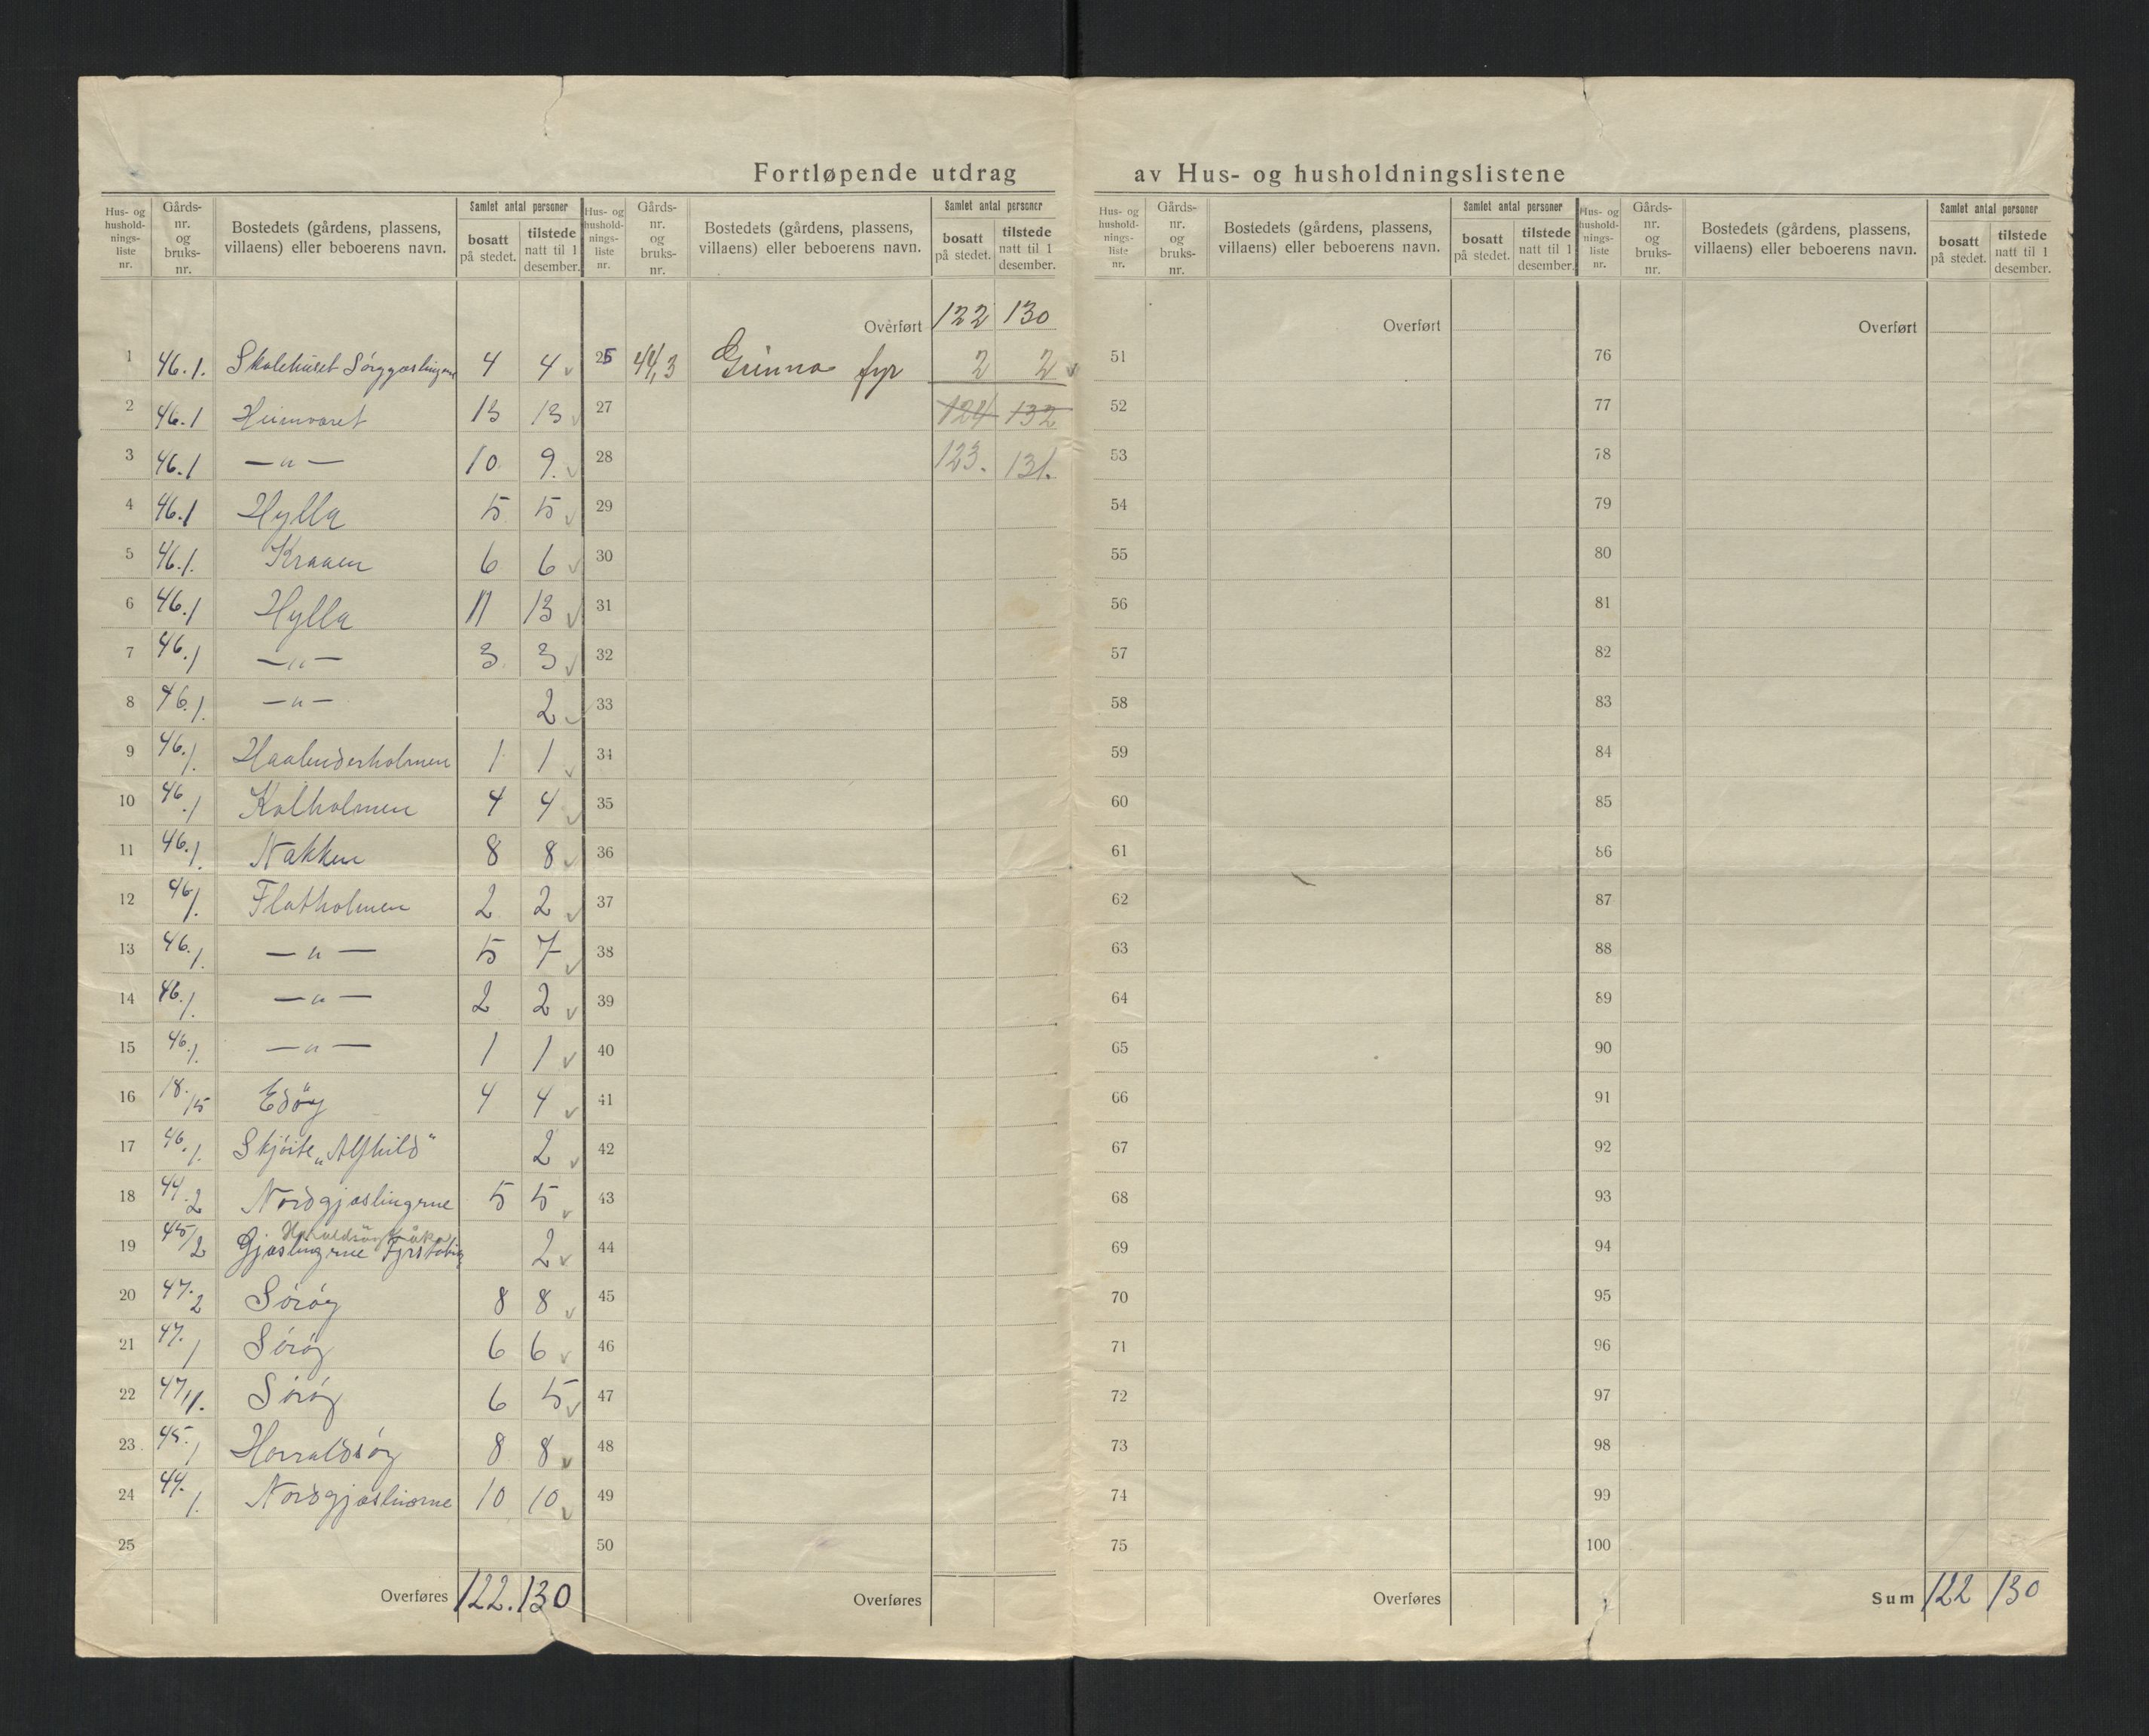 Fortløpende utdrag av Hus- og husholdningslistene
Hus- og hushold-nings-liste nr. Gårds-nr. og bruks-nr. Bostedets (gårdens, plassens, villaens) eller beboerens navn. Samlet antal personer bosatt på stedet. tilstede natt til 1 desember.
1 46.1. Skolehuset 4 4
2 46.1 Heimværet 13 13
3 46.1 —„— 10 9.
4 46.1 Hylla 5 5
5 46.1. Kraaen 6 6
6 46.1 Hylla 11 13
7 46.1 —„— 3 3
8 46.1. —„— 2
9 46.1. 1 1
10 46.1 Kalholmen 4 4
11 46.1. Nakken 8 8
12 46.1. Flatholmen 2 2
13 46.1. —„— 5 7
14 46.1. —„— 2 2
15 46.1. —„— 1 1
16 18./15 Edöy 4 4
17 46.1. Skjöite „Alfhild" 2
18 44.2 Nordgjæslingrne 5 5
19 45/2 Gjæslingrne 2
20 47.2 Söröy 8 8
21 47.1 Söröy 6 6
22 47,1. Söröy 6 5
23 45.1 Horraldsöy 8 8
24 44.1. 10 10
25
Overføres 122. 130
Hus- og hushold-nings-liste nr. Gårds-nr. og bruks-nr. Bostedets (gårdens, plassens, villaens) eller beboerens navn. Samlet antal personer bosatt på stedet. tilstede natt til 1 desember.
Overført 122 130
25 44,3 Grinna fyr 2 2
27 124 132
28 123. 131.
29
30
31
32
33
34
35
36
37
38
39
40
41
42
43
44
45
46
47
48
49
50
Overføres
Hus- og hushold-nings-liste nr. Gårds-nr. og bruks-nr. Bostedets (gårdens, plassens, villaens) eller beboerens navn. Samlet antal personer bosatt på stedet. tilstede natt til 1 desember.
Overført
51
52
53
54
55
56
57
58
59
60
61
62
63
64
65
66
67
68
69
70
71
72
73
74
75
Overføres
Hus- og hushold-nings-liste nr. Gårds-nr. og bruks-nr. Bostedets (gårdens, plassens, villaens) eller beboerens navn. Samlet antal personer bosatt på stedet. tilstede natt til 1 desember.
Overført
76
77
78
79
80
81
82
83
84
85
86
87
88
89
90
91
92
93
94
95
96
97
98
99
100
Sum 122 130